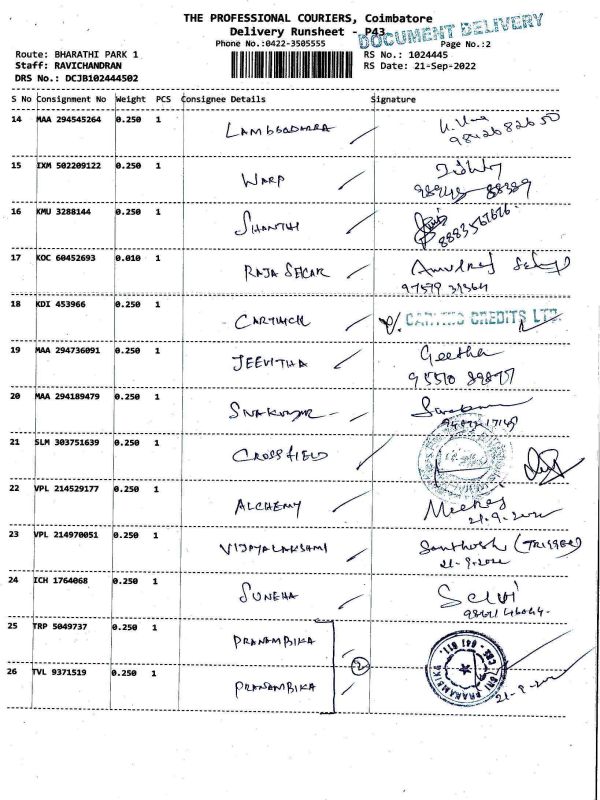 THE PROFESSIONAL COURIERS, Coimbatore
Delivery Runsheet - P43
DOCUMENT DELIVERY
Phone No.:0422-3505555
Page No.:2
Route: BHARATHI PARK 1
RS No.: 1024445
Staff: RAVICHANDRAN
RS Date: 21-Sep-2022
DRS No.: DCJB102444502
S No Consignment No Weight PCS Consignee Details Signature
14 MAA 294545264 0.250 1
9842682650
15 IXM 502209122 0.250 1 WARP
16 KMU 3288144 0.250 1 SHANTHI
17 KOC 60452693 0.010 1 RAJA SEKAR
18 KDI 453966 0.250 1 CREDITS LTD.
19 MAA 294736091 0.250 1 JEEVITHA Geetha
20 MAA 294189479 0.250 1
21 SLM 303751639 0.250 1 CROSSFIELD
22 VPL 214529177 0.250 1 ALCHEMY
21-9-2022
23 VPL 214970051 0.250 1 VIJAYALAKSHMI Santhosh (TRIGGER)
21-9-2022
24 ICH 1764068 0.250 1 SUNEHA Selvi
25 TRP 5049737 0.250 1 PRANAMBIKA
2
26 TVL 9371519 0.250 1 PRANAMBIKA
21-9-2022